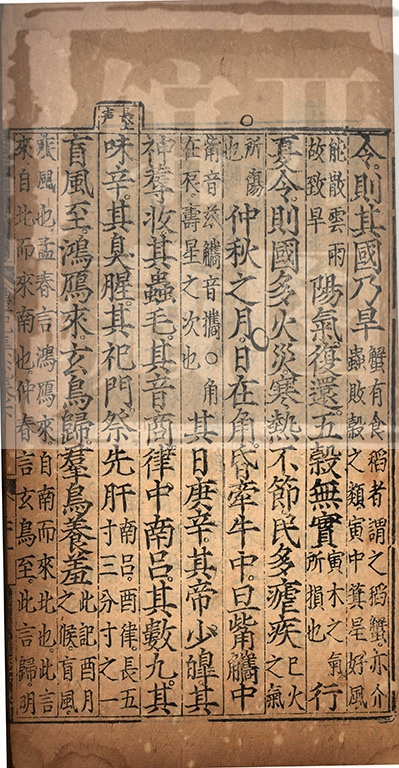 令。則其國乃旱蟹有食稻者謂之稻蟹亦介
蟲敗穀之類寅中箕星好風
能散雲雨
故致旱陽氣復還。五穀無實寅木之氣
所損也行
夏令。則國多火災。寒熱不節。民多瘧疾巳火
之氣
所傷
也仲秋之月。日在角。昏牽牛中。旦觜觿中
觜音玆觿音攜○角
在辰壽星之次也其日庚辛。其帝少皥。其
神蓐收。其蟲毛。其音商。律中南呂。其數九。其
味辛。其臭腥。其祀門。祭先肝南呂酉律長五
寸三分寸之一
盲風至。鴻鴈來。玄鳥歸。羣鳥養羞此記酉月
之候盲風
疾風也。孟春言鴻鴈來自南而來北也。此言
來自北而來南也。仲春言玄鳥至。此言歸。明